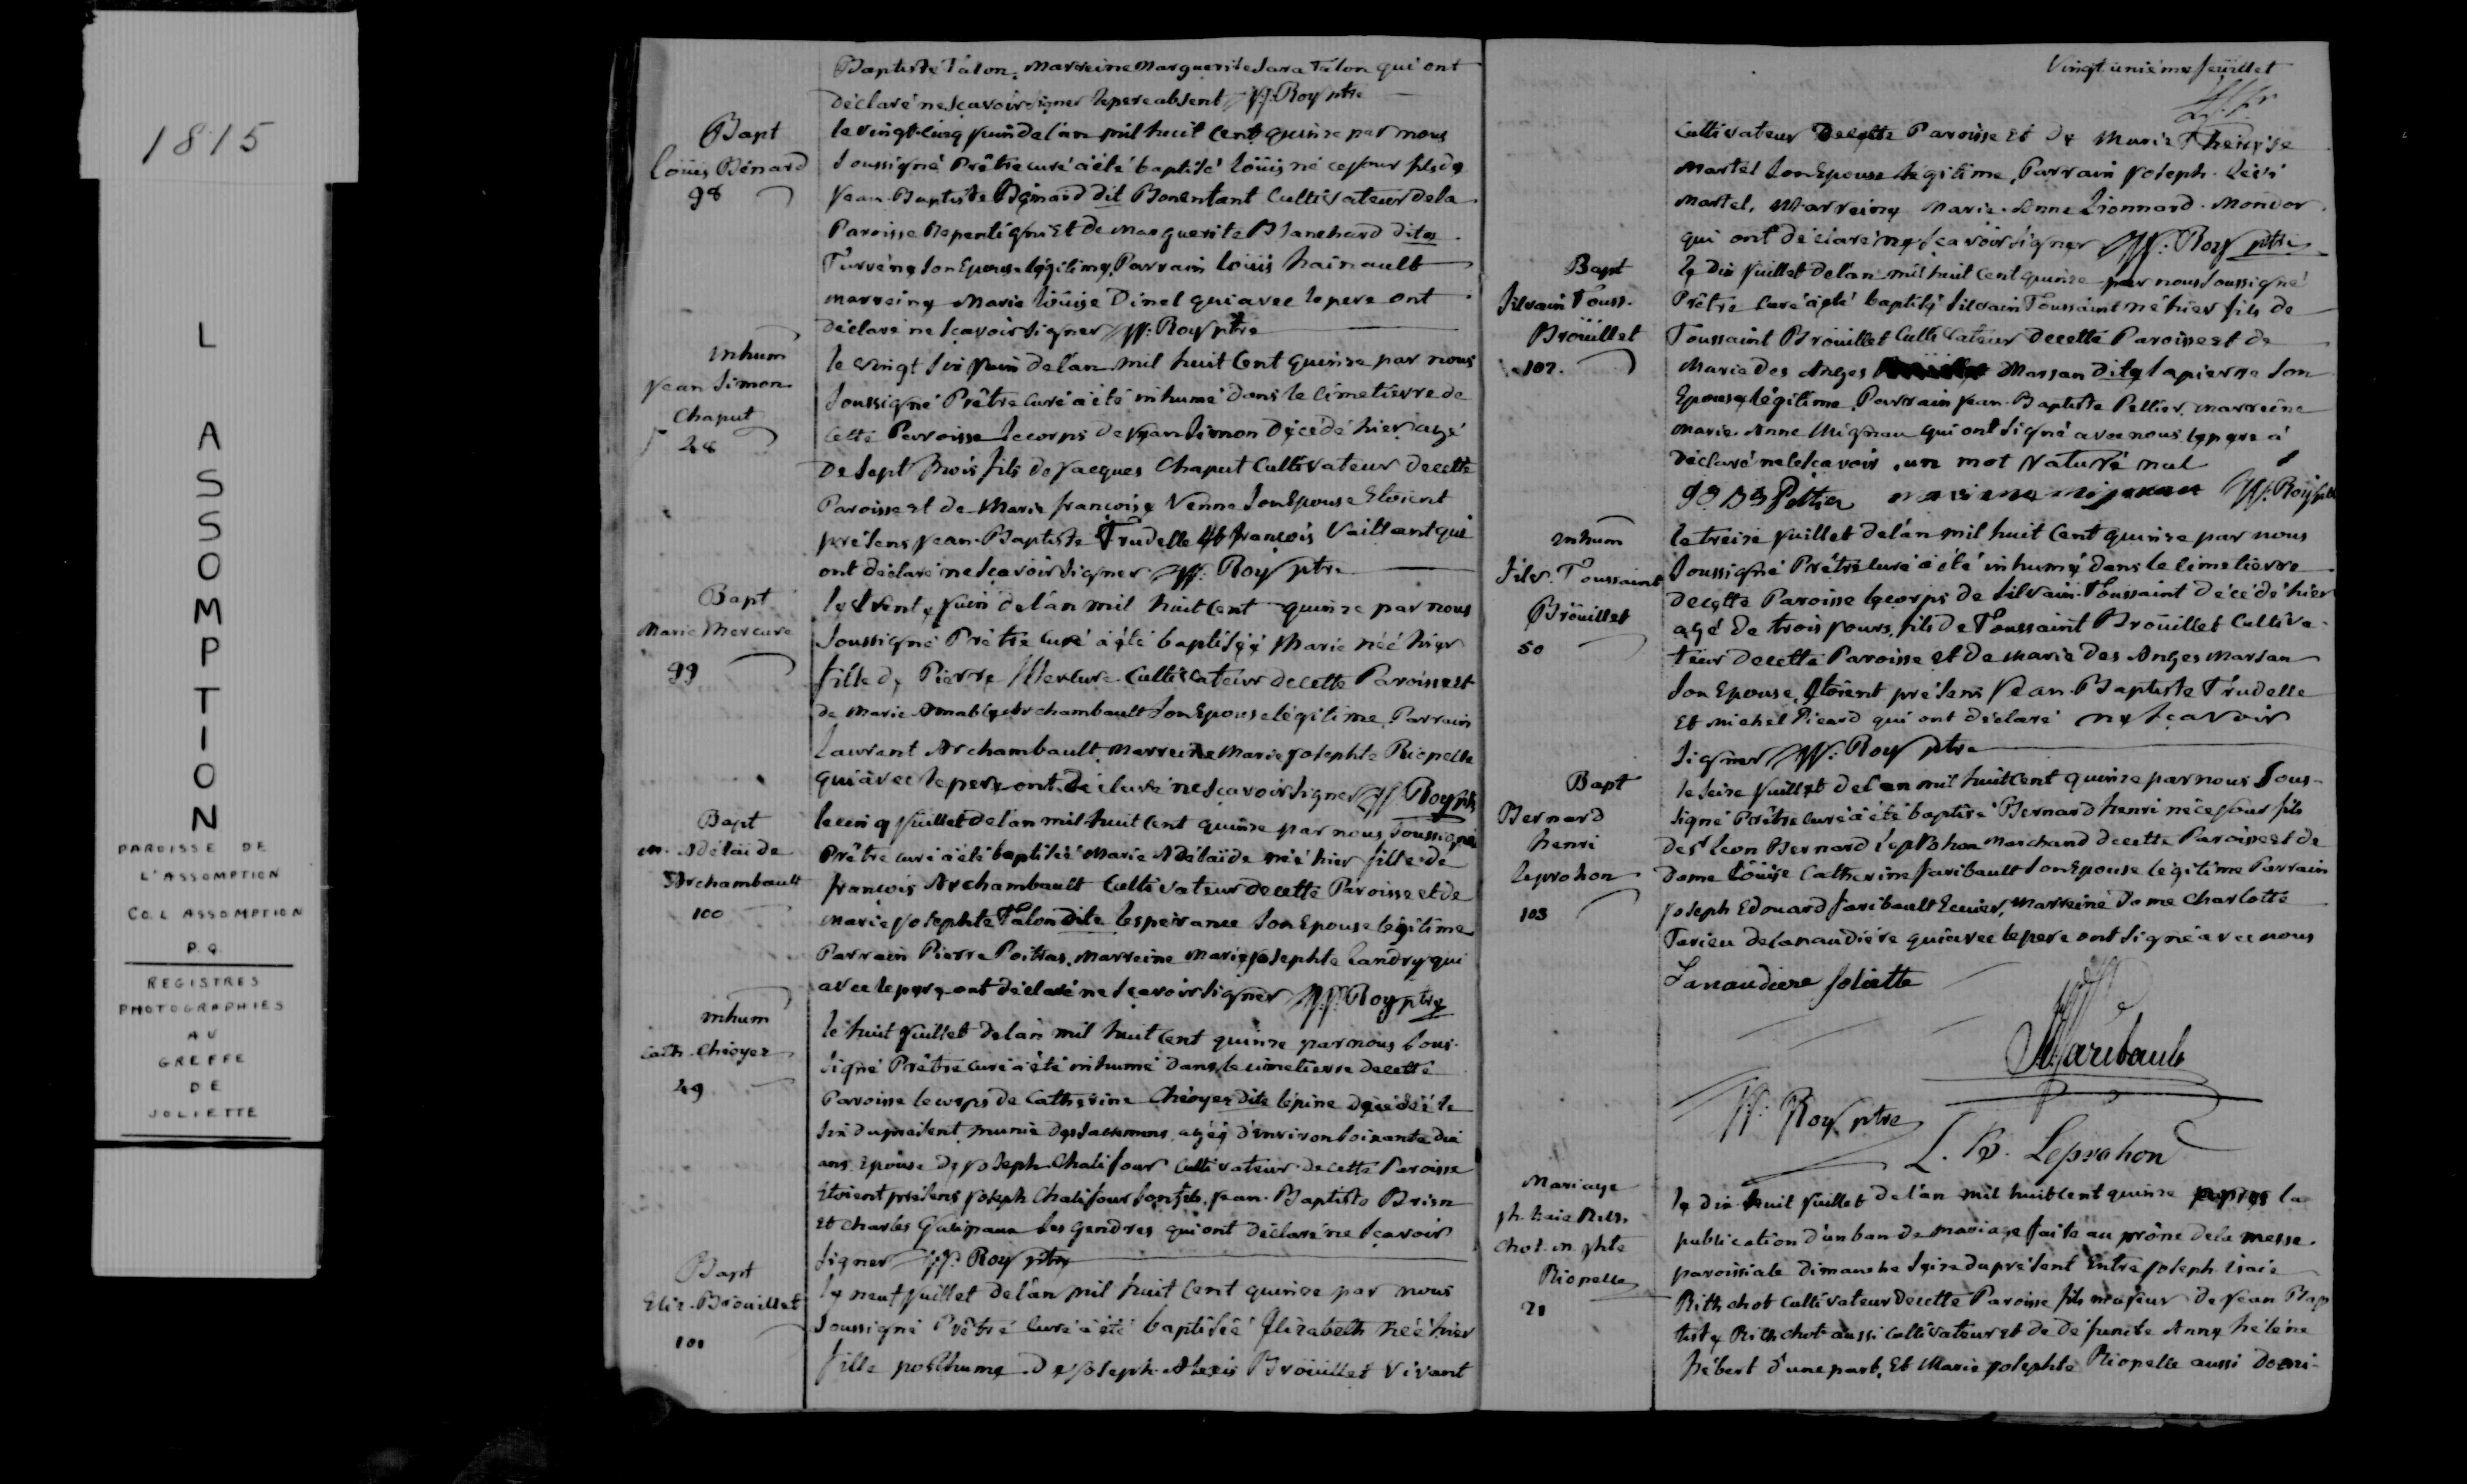 1815
L
A
S
S
O
M
P
T
I
O
N
PAROISSE DE
L'ASSOMPTION
CO. L ASSOMPTION
P.Q
REGISTRES
PHOTOGRAPHIES
AU
GREFFE
DE
JOLIETTE
Baptiste Talon, Marreine Marguerite Sara Talon qui ont
déclaré ne sçavoir signer le pere absent Roy ptre
Bapt
Loüis Bénard
98
le vingt-cinq juin de l'an mil huit cent quinze par nous
soussigné Prêtre curé a été baptisé loüis né ce jour fils de
Jean-Baptiste Bénard dit Bonentant Cultivateur de la
Paroisse Repentigni et de Marguerite Blanchard dite
son Epouse légitime, Parrain loüis hainault
marreine Marie loüise Dinel qui avec le pere ont
déclaré ne sçavoir signer Roy ptre
inhum
Jean Simon
Chaput
48
le vingt six juin de l'an mil huit cent quinze par nous
soussigné Prêtre Curé a été inhumé dans le Cimetierre de
cette Paroisse le corps de Jean Simon décédé hier agé
de sept mois fils de Jacques Chaput Cultivateur de cette
Paroisse et de Marie françoise Venne son Epouse Etoient
présens Jean-Baptiste Trudelle Et françois Vaillant qui
ont déclaré ne sçavoir signer Roy ptre
Bapt
Marie Mercure
99
le trente juin de l'an mil huit Cent quinze par nous
soussigné Prêtre Curé a été baptiséé Marie néé hier
fille de Pierre Mercure Cultivateur de cette Paroisse et
de Marie-Amable Archambault son Epouse légitime, Parrain
Laurent Archambault, Marreine Marie Josephte Riopelle
qui avec le pere ont déclaré ne sçavoir signer Roy ptre
Bapt
m. Adélaïde
Archambault
100
le cinq juillet de l'an mil huit Cent quinze par nous soussigné
Prêtre curé a été baptiséé Marie Adélaïde néé hier fille de
françois Archambault Cultivateur de cette Paroisse et de
Marie Josephte Talon dite lesperance son Epouse légitime
Parrain Pierre Poitras, Marreine Marie Josephte Landry qui
avec le pere ont déclaré ne sçavoir signer Roy ptre
inhum
Cath. Chéoyer
49
le huit juillet de l'an mil huit cent quinze par nous sous-
signé Prêtre Curé a été inhumé dans le cimetierre de cette
Paroisse le corps de Catherine Chéoyer dite lépine décédéé le
six du présent, munie des sacremens, agéé d'environ soixante dix
ans, Epouse de Joseph Chalifour Cultivateur de cette Paroisse
Etoient présens Joseph Chalifour son fils, Jean-Baptiste Brien
Et Charles Galipeaux ses gendres qui ont déclaré ne sçavoir
signer Roy ptre
Bapt
Eliz. Broüillet
101
le neuf juillet de l'an mil huit Cent quinze par nous
soussigné Prêtre Curé a été baptiséé Elizabeth néé hier
fille posthume de Joseph-Alexis Broüillet vivant
Vingt unième feüillet
Cultivateur de cette Paroisse Et de Marie Thérèse
Martel son Epouse légitime, Parrain Joseph
Martel, Marreine Marie-Anne Lionnard-Mondor
qui ont déclaré ne sçavoir signer Roy ptre
Bapt
Silvain Touss.
Broüillet
102.
le dix juillet de l'an mil huit Cent quinze par nous soussigné
Prêtre Curé a été baptisé Silvain Toussaint né hier fils de
Toussaint Broüillet Cultivateur de cette Paroisse et de
Marie des Anges Massan dite lapierre son
Epouse légitime, Parrain Jean-Baptiste Pellier, Marreine
Marie-Anne Migneau qui ont signé avec nous, le pere a
déclaré ne le sçavoir, un mot raturé nul
Roy ptre
inhum
Silv. Toussaint
Broüillet
50
le treize juillet de l'an mil huit Cent quinze par nous
soussigné Prêtre Curé a été inhumé dans le cimetierre
de cette Paroisse le corps de Silvain-Toussaint décédé hier
agé de trois jours, fils de Toussaint Broüillet Cultiva-
teur de cette Paroisse et de Marie des Anges Marsan
son Epouse, Etoient présens Jean-Baptiste Trudelle
Et Michel Picard qui ont déclaré ne sçavoir
signer Roy ptre
Bapt
Bernard
henri
leprohon
103
le seize juillet de l'an mil huit Cent quinze par nous sous-
signé Prêtre Curé a été baptisé Bernard henri né ce jour fils
de Sr. Leon Bernard Leprohon Marchand de cette Paroisse et de
Dame Loüise Catherine faribault son Epouse légitime Parrain
Joseph Edouard faribault Ecuier, Marreine Dame Charlotte
Tarieu de lanaudière qui avec le pere ont signé avec nous
Lanaudiere Joliette
Faribault
Roy ptre
L. B. Leprohon
Mariage
ph. isaie Rits.
chot. m. phte
Riopelle
21
le dix-huit juillet de l'an mil huit Cent quinze après la
publication d'un ban de mariage faite au prône de la messe
paroissiale dimanche seize du présent Entre Joseph-isaïe
Rithchot Cultivateur de cette Paroisse fils majeur de Jean Bap
tiste Rithchot aussi Cultivateur et de défunte Anne héléne
hébert d'une part, Et Marie Josephte Riopelle aussi domi-